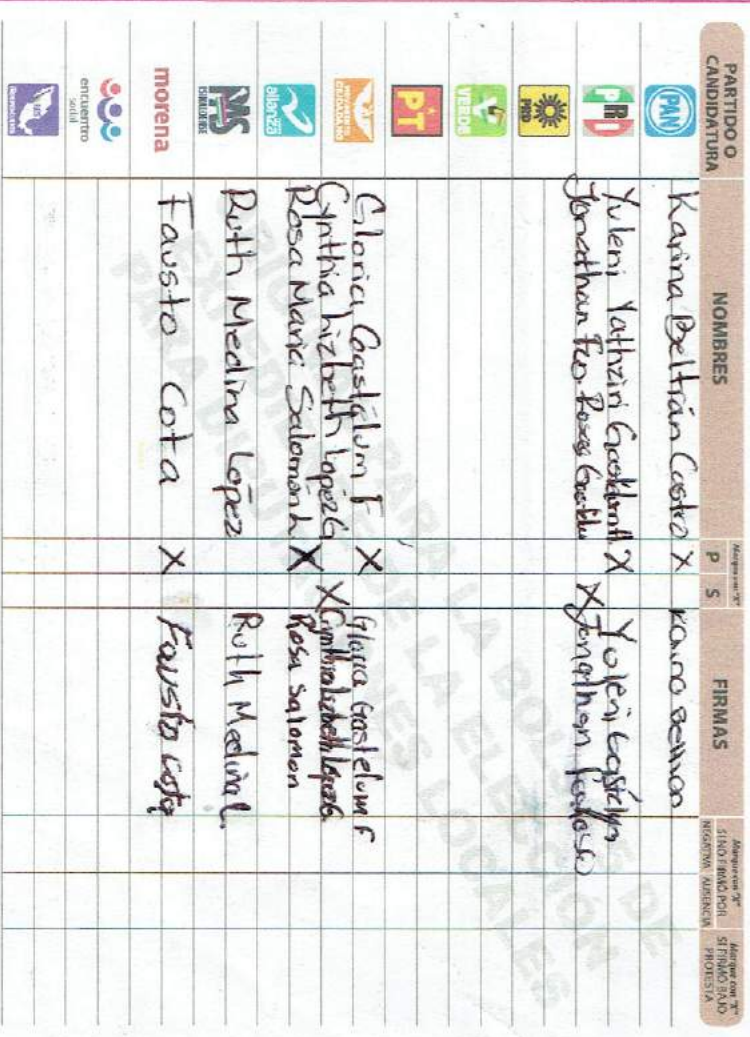 PARTIDO O CANDIDATURA
NOMBRES
Marque con "X"
P S
FIRMAS
Marque con "X" SI NO FIRMÓ POR
NEGATIVA AUSENCIA
Marque con "X" SI FIRMÓ BAJO PROTESTA
PAN Karina Beltrán Castro X
PRI Yuleni Yathziri X Yuleni
Jonathan X Jonathan
PRD
VERDE
PT
MOVIMIENTO CIUDADANO Gloria Gastélum F X Gloria Gastelum F
Cynthia Lizbeth López G. X Cynthia Lizbeth López G.
alianza Rosa Maria Salomón L X Rosa Salomon
PAS Ruth Medina López Ruth Medina L.
morena Fausto Cota X Fausto Cota
encuentro social
PARA LA BOLSA DE
EXPEDIENTE DE LA ELECCIÓN
PARA DIPUTACIONES LOCALES